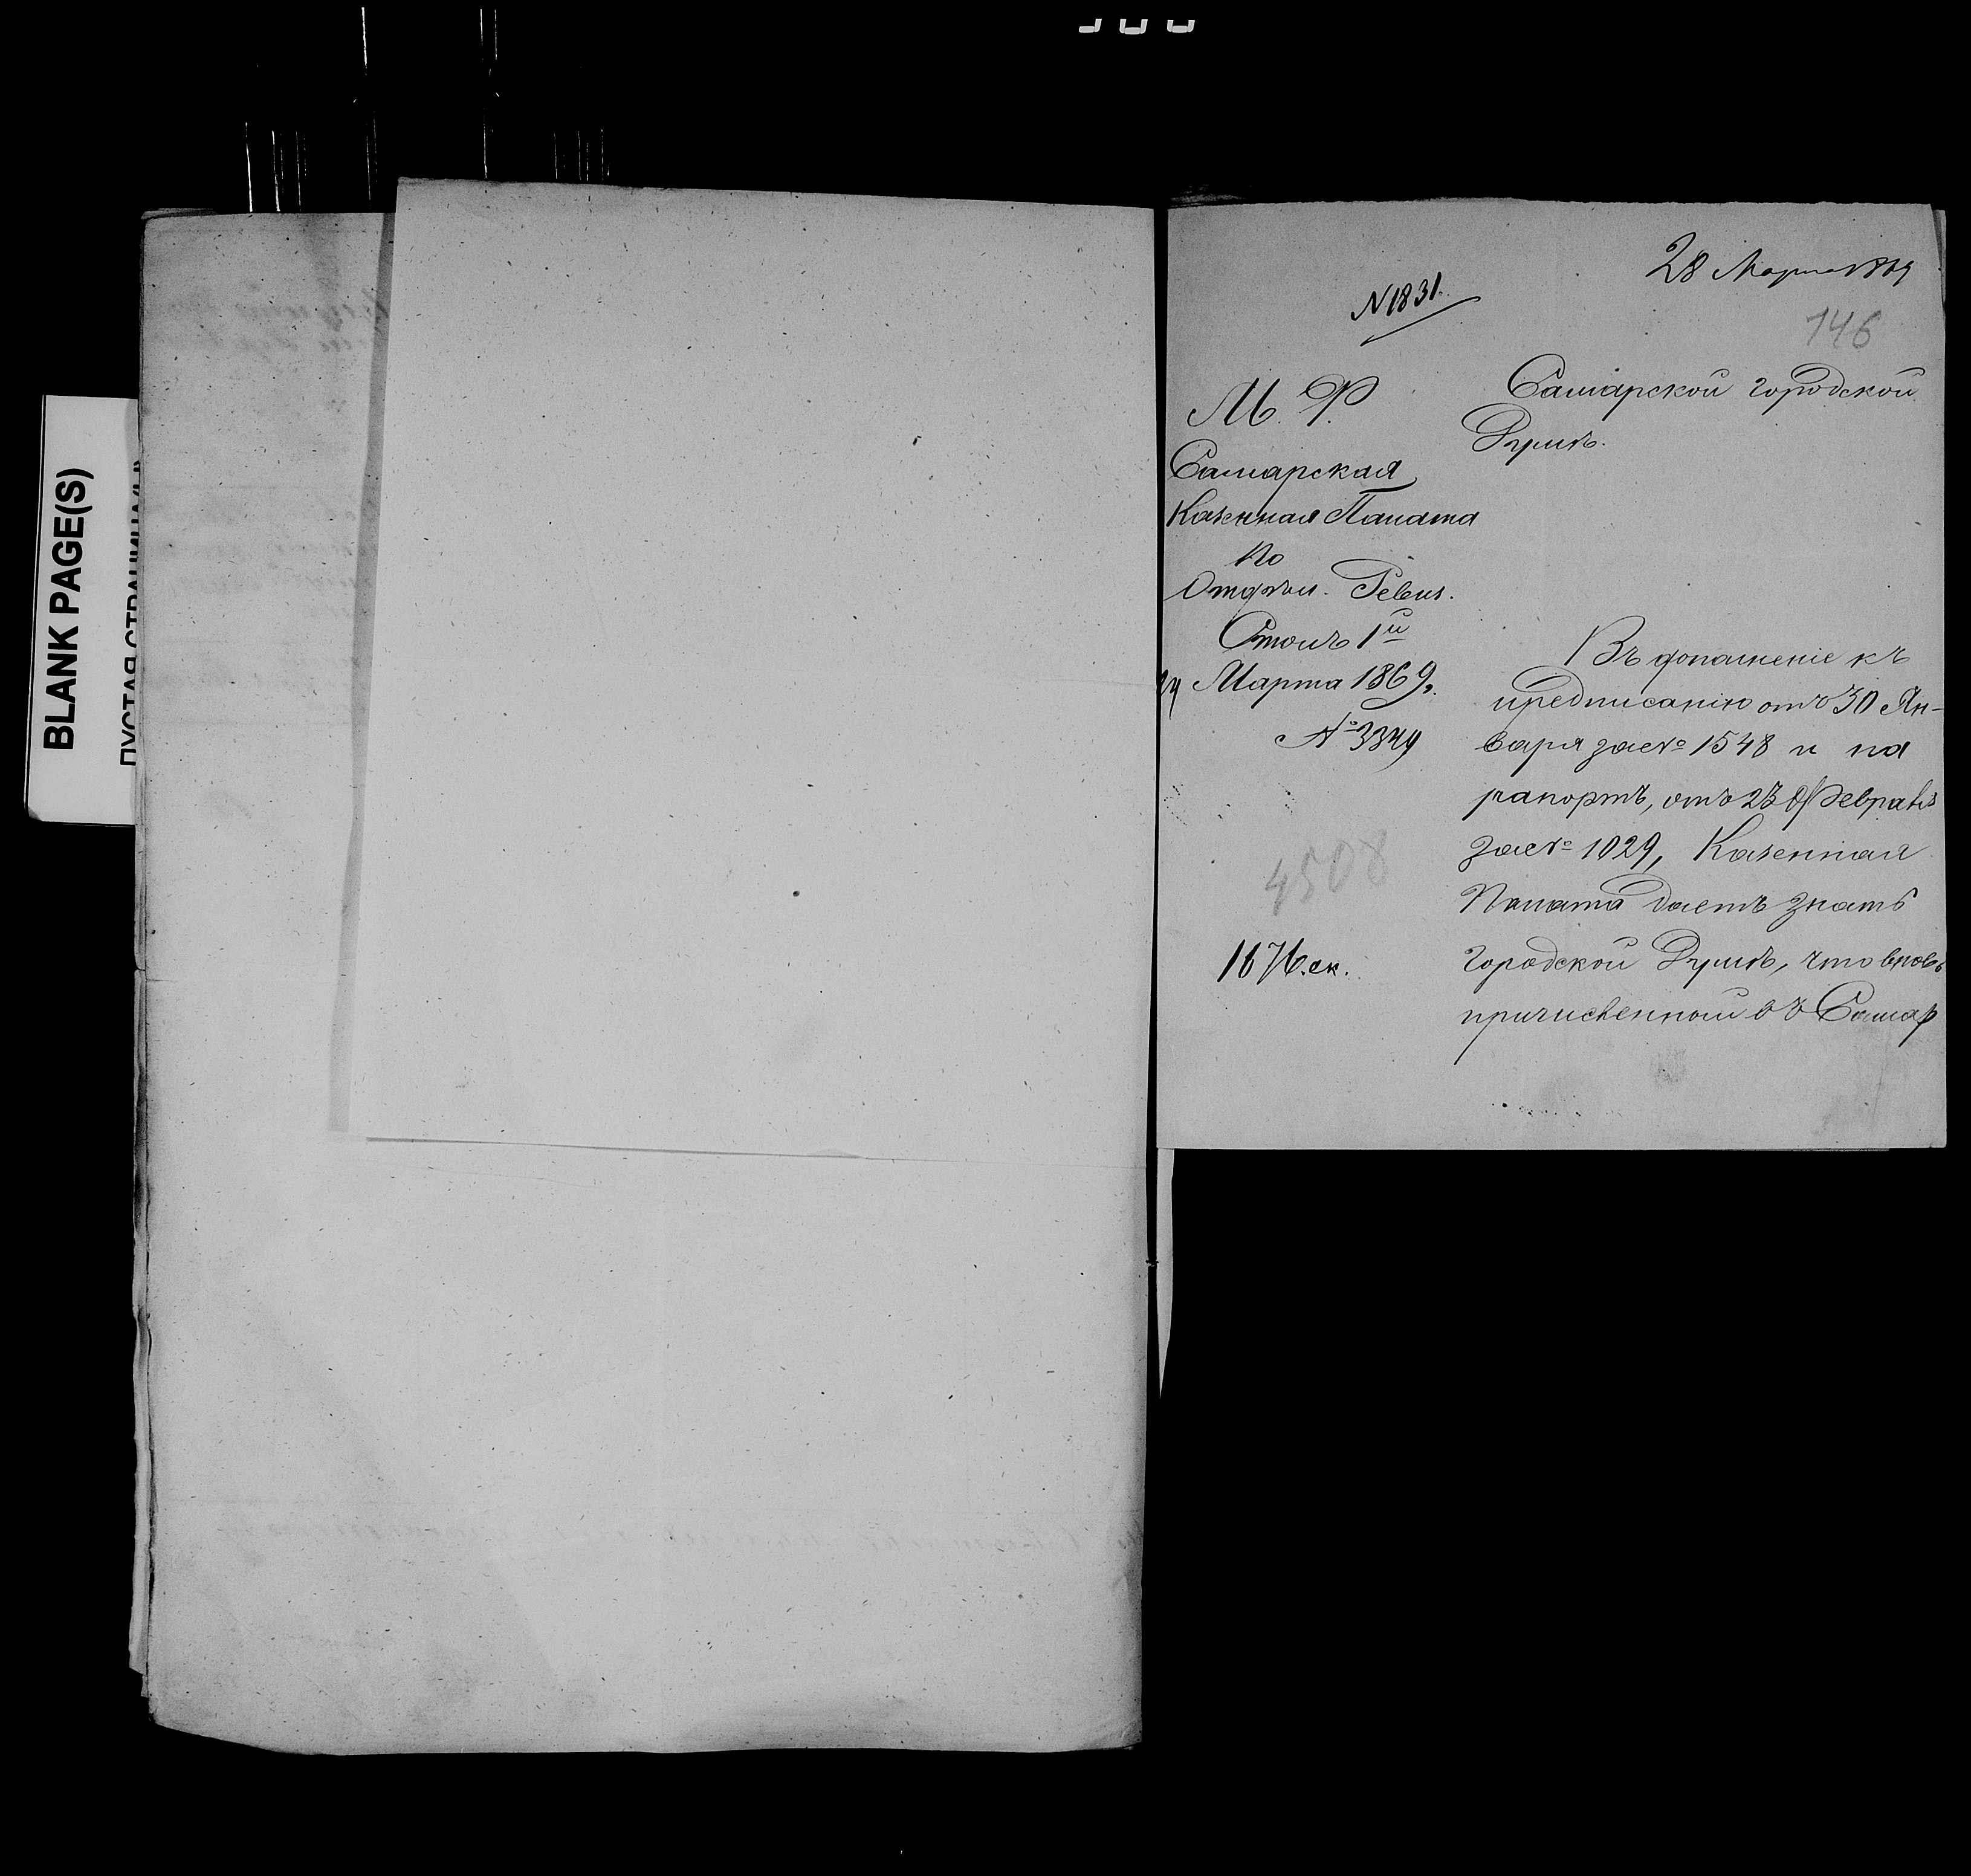 BLANK PAGE(S)
28 Марта 1869
N 1831.
146
М. Ф.
Самарская
Казенная Палата
По
Отдѣл. Ревиз.
Столъ 1й
24 Марта 1869 г.
№ 3349
4508
1676. ек.
Самарской городской
Думѣ.
Въ дополненіе къ
предписанію отъ 30 Ян-
варя за № 1548 и на
рапортъ, отъ 23 Февраля
за № 1029, Казенная
Палата даетъ знать
городской Думѣ, что вновь
причисленной въ Самар